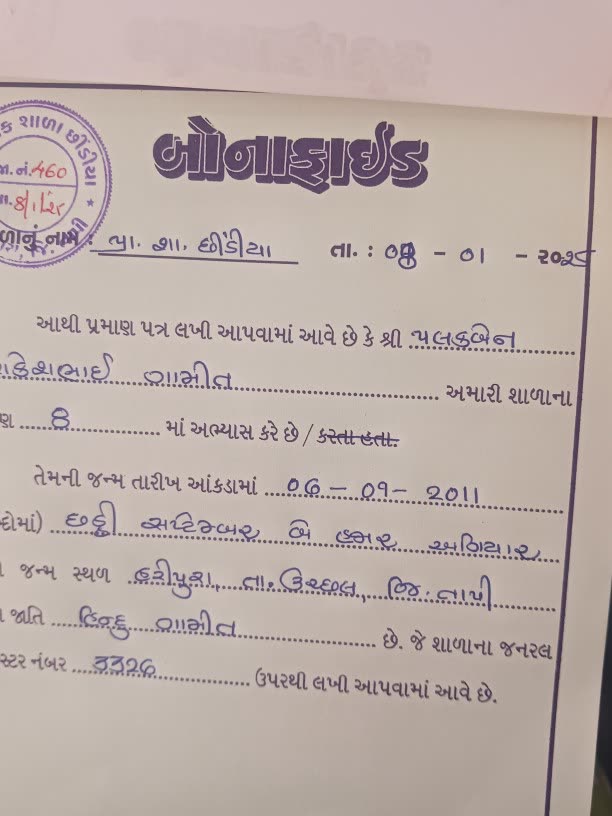 ક શાળા છીંડીયા
જા.નં. 460
તા. 8/1/25
બોનાફાઈડ
ળાનું નામ : પ્રા. શા. છીંડીયા તા. : 08 - 01 - ૨૦૨૫
આથી પ્રમાણ પત્ર લખી આપવામાં આવે છે કે શ્રી પલકબેન
ાકેશભાઈ ગામીત અમારી શાળાના
ણ 8 માં અભ્યાસ કરે છે / કરતા હતા.
તેમની જન્મ તારીખ આંકડામાં 06 - 09 - 2011
દોમાં) છઠ્ઠી સપ્ટેમ્બર બે હજાર અગિયાર
જન્મ સ્થળ હરીપુરા, તા. ઉચ્છલ, જિ. તાપી
જાતિ હિન્દુ ગામીત છે. જે શાળાના જનરલ
સ્ટર નંબર 3326 ઉપરથી લખી આપવામાં આવે છે.